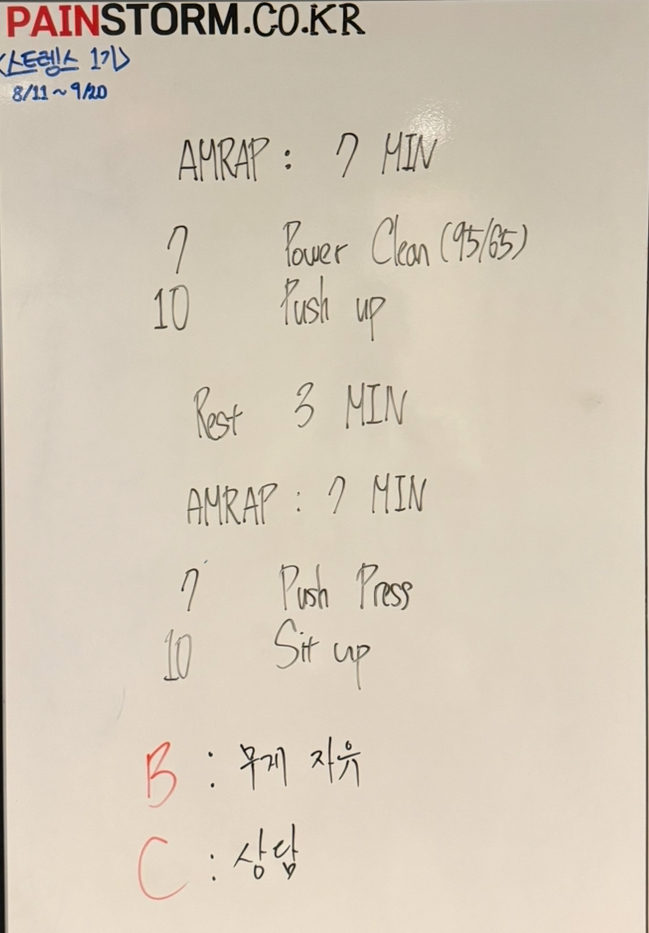 PAINSTORM.CO.KR
<스트렝스 1기>
8/11~9/20
AMRAP : 7 MIN
7 Power Clean (95/65)
10 Push up
Rest 3 MIN
AMRAP : 7 MIN
7 Push Press
10 Sit up
B : 무게 자유
C : 상담